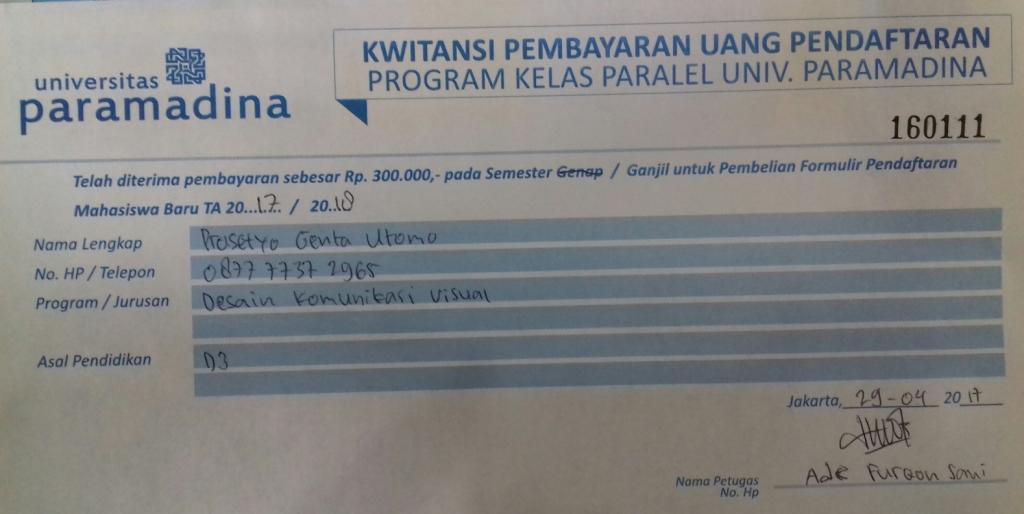 universitas
paramadina
KWITANSI PEMBAYARAN UANG PENDAFTARAN
PROGRAM KELAS PARALEL UNIV. PARAMADINA
160111
Telah diterima pembayaran sebesar Rp. 300.000,- pada Semester Genap / Ganjil untuk Pembelian Formulir Pendaftaran
Mahasiswa Baru TA 20...17.. / 20..18
Nama Lengkap Prasetyo Genta Utomo
No. HP / Telepon 0877 7737 2965
Program / Jurusan Desain Komunikasi Visual
Asal Pendidikan D3
Jakarta, 29-04 2017
Ade Furqon Sani
Nama Petugas
No. Hp